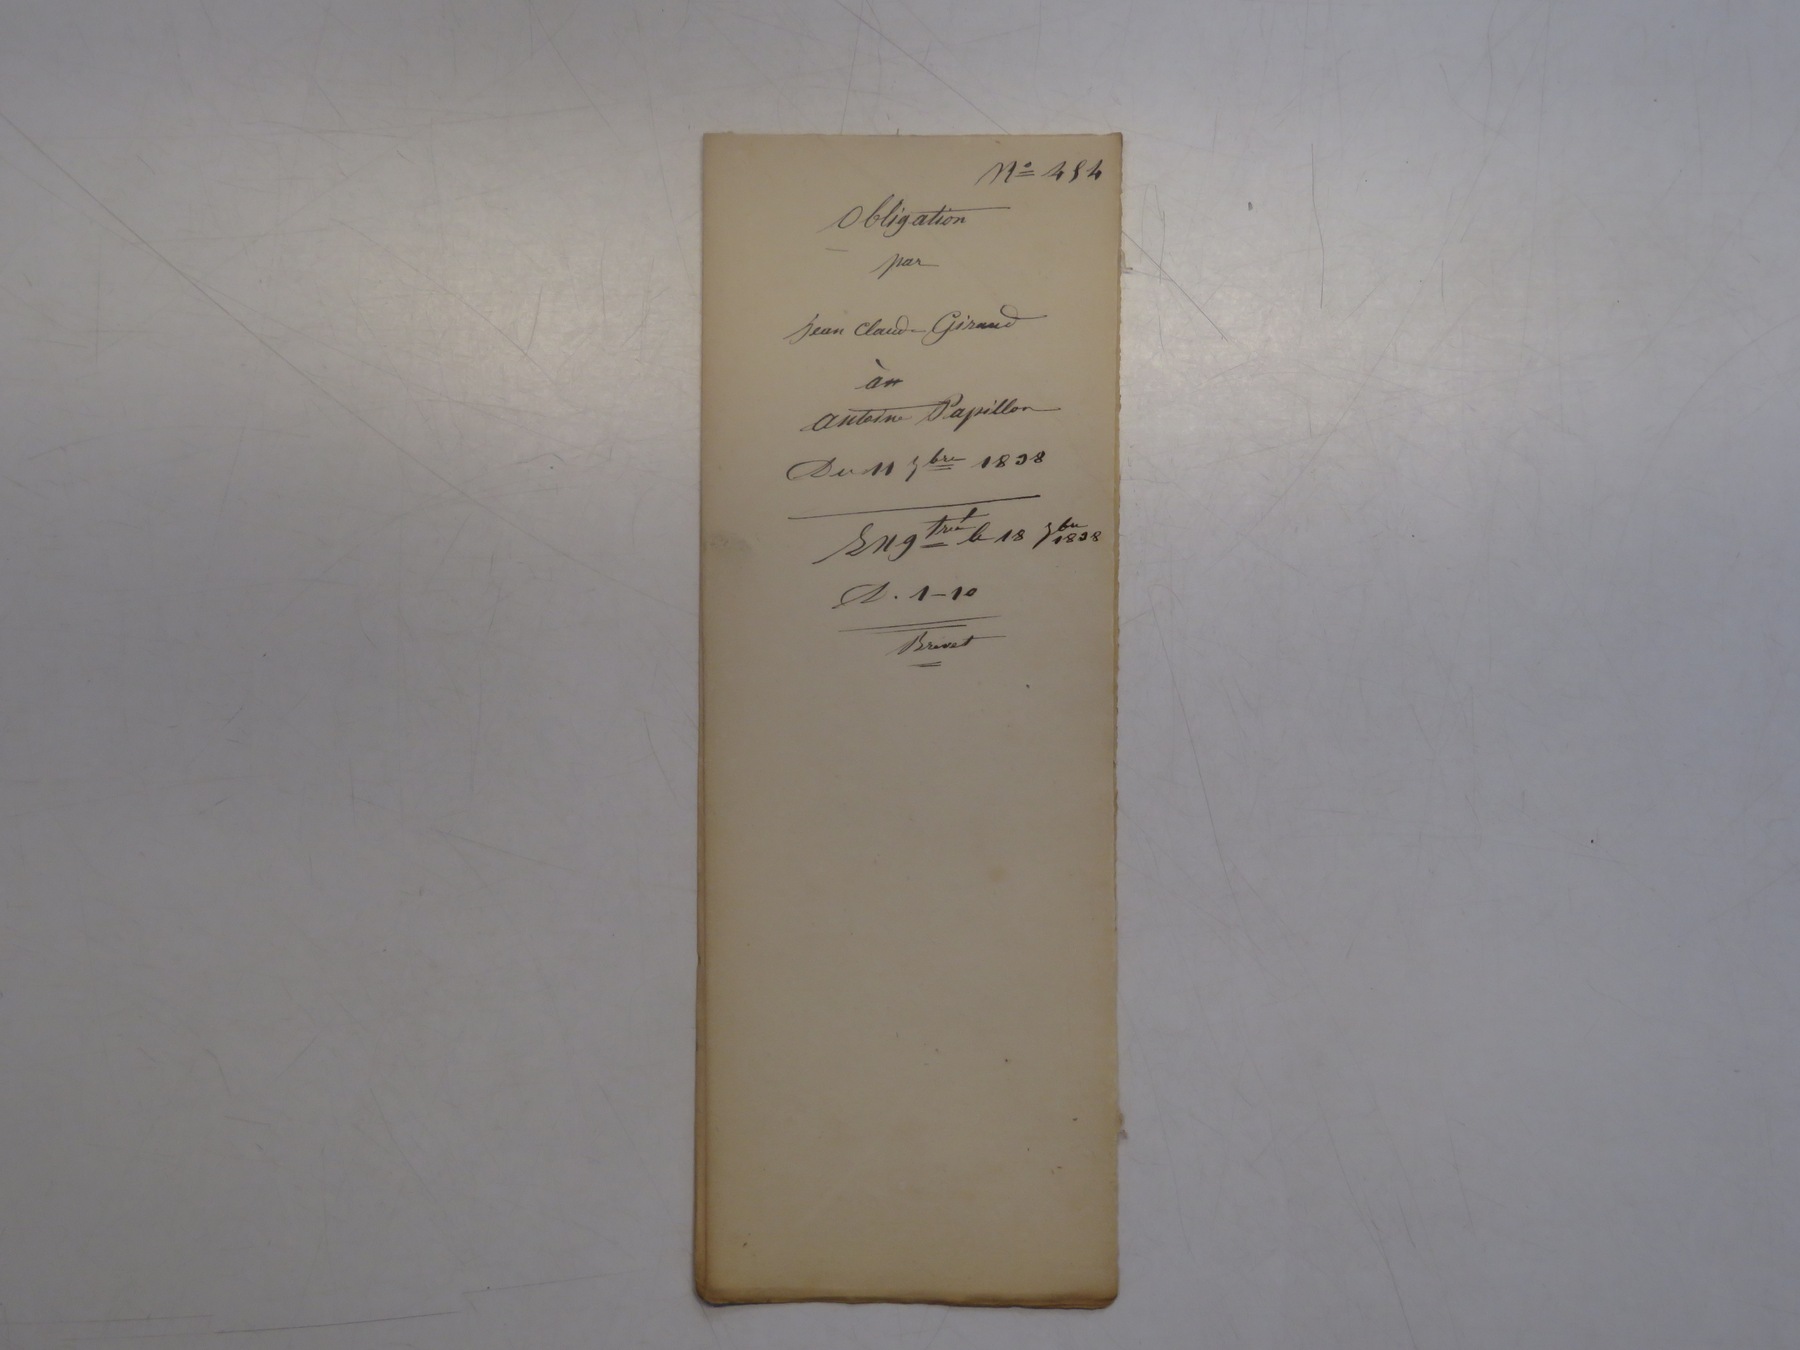 No 454
Obligation
par
Jean Claude Giraud
à
Antoine Papillon
Du 11 9bre 1838
le 18 9bre 1838
D. 1-10
Brevet